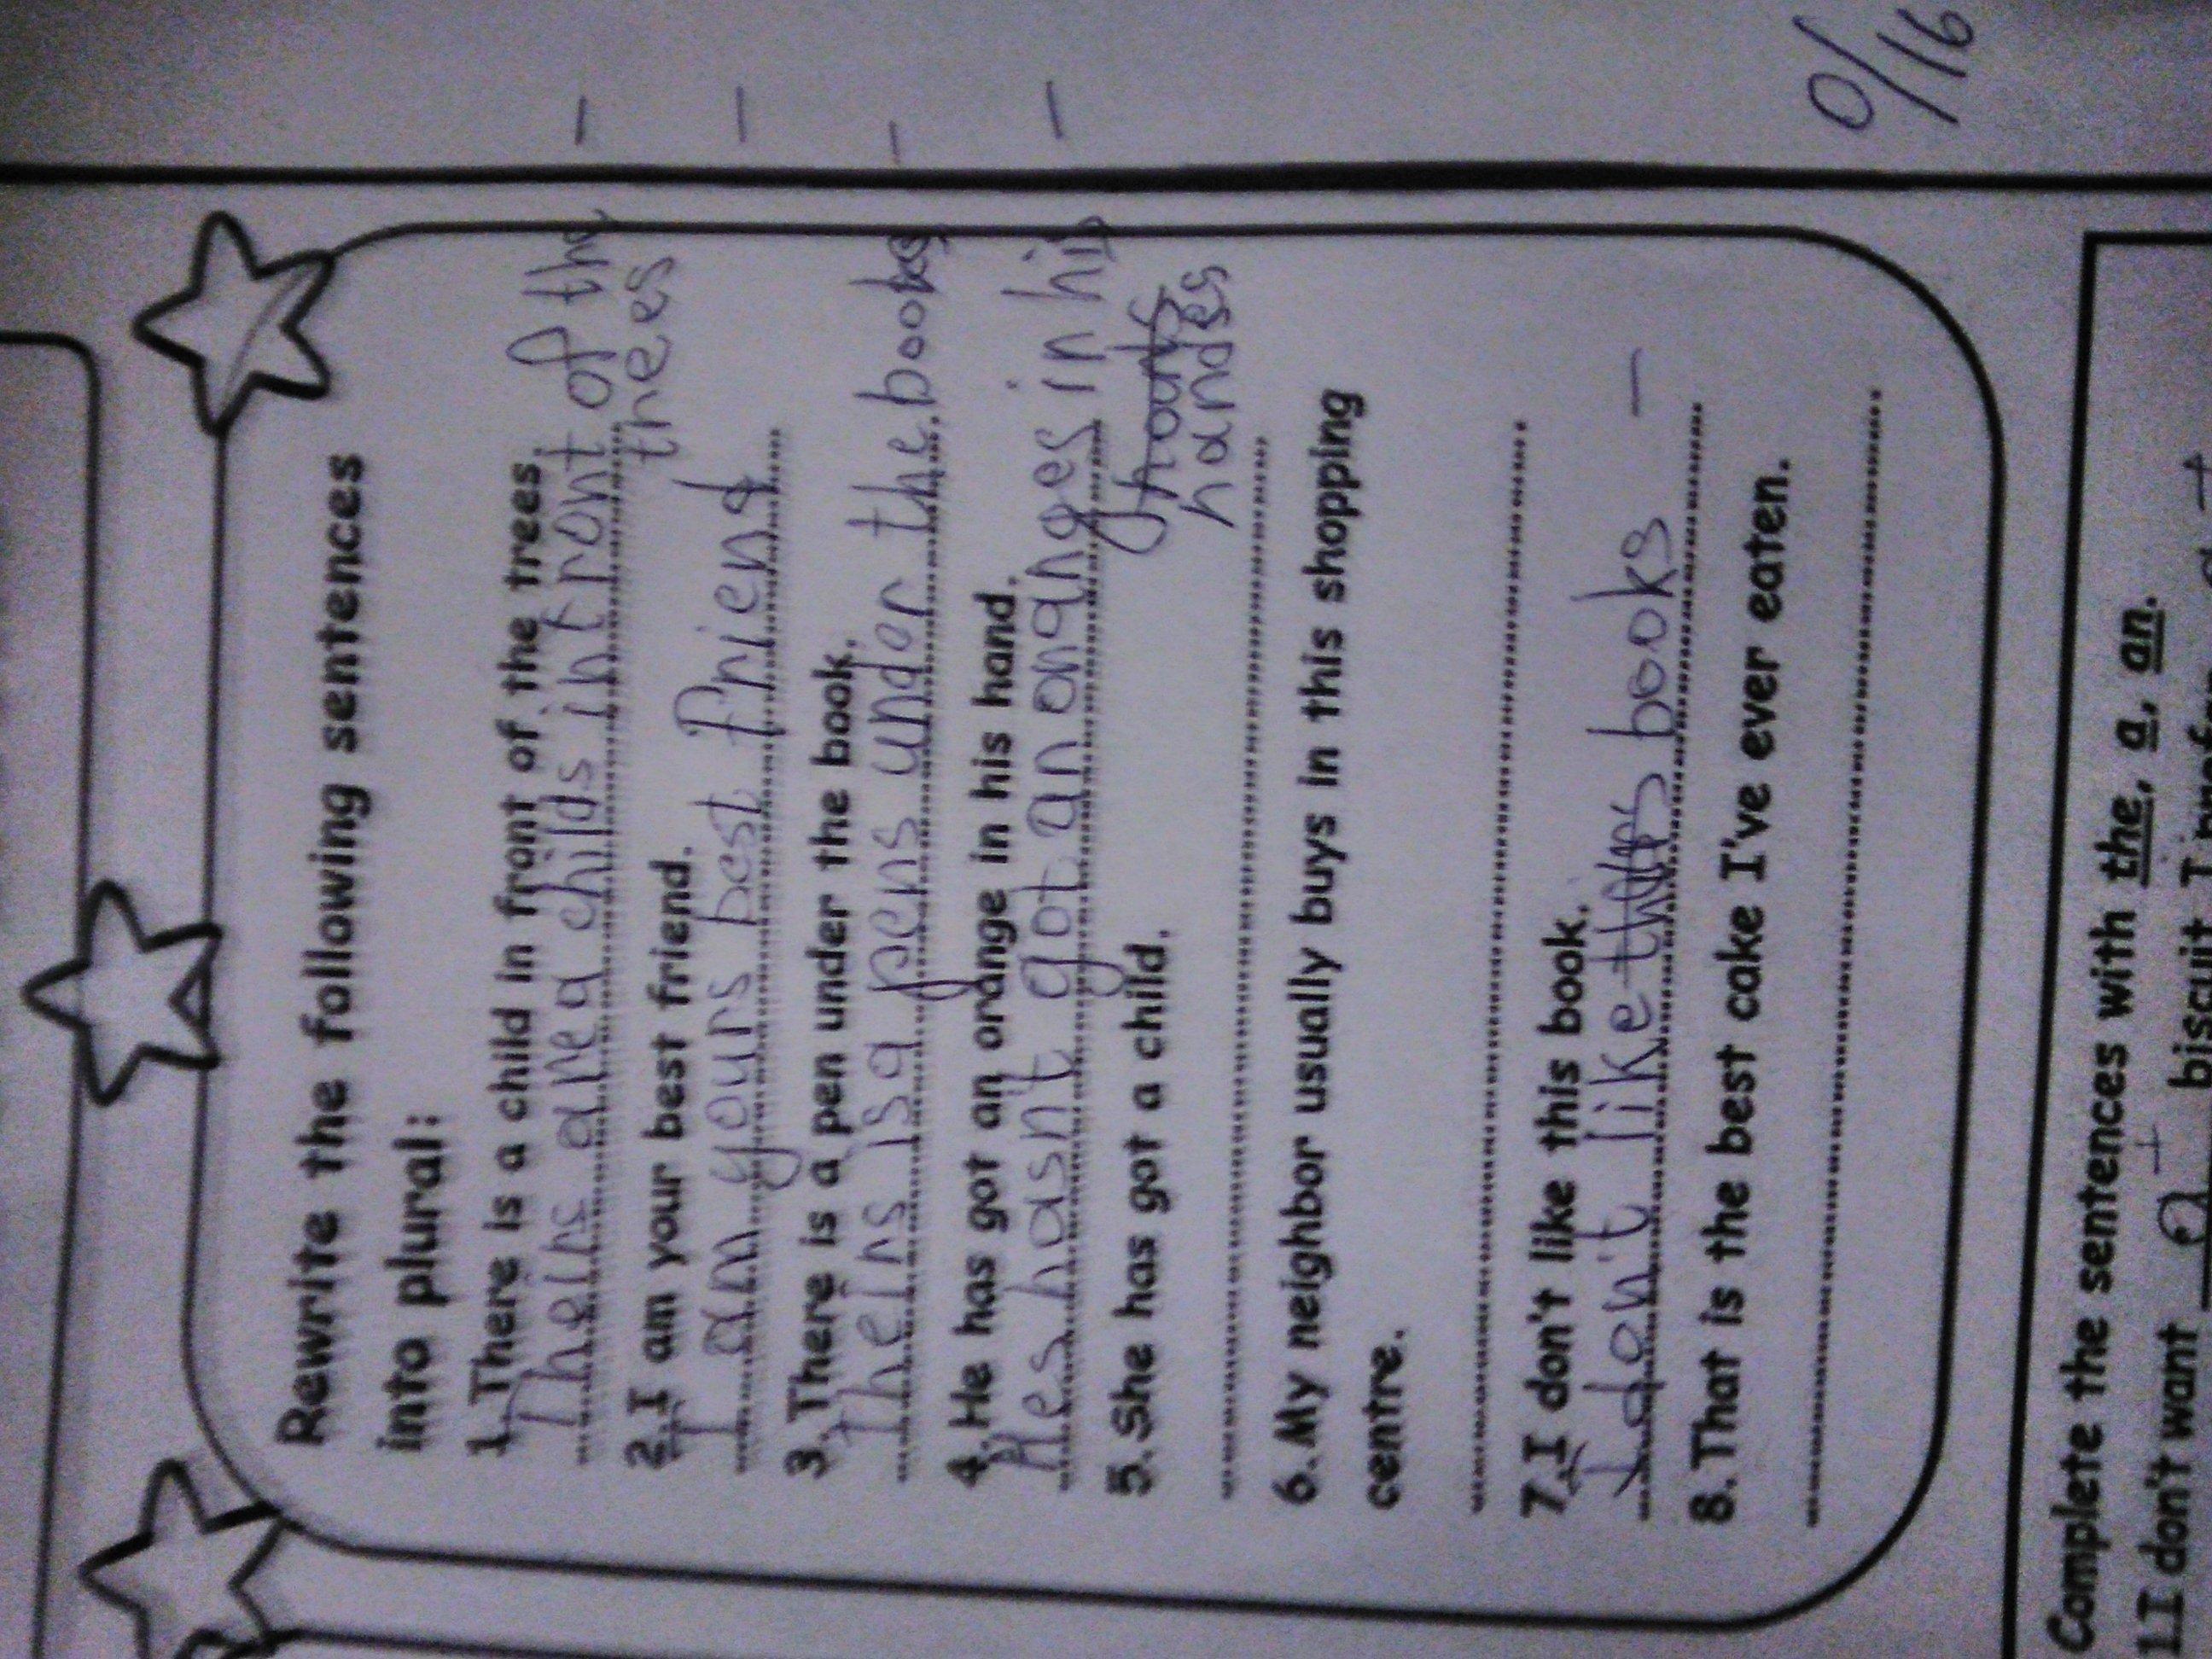 Rewrite the following sentences
into plural:
1.There is a child in front of the trees.
Theirs area childs int ront of the
threes
2.I am your best friend.
I am yours best friend
3.There is a pen under the book.
theirs is a pens under the books
4.He has got an orange in his hand.
Hes hasnt got an oranges in his
handes
5.She has got a child.
6.My neighbor usually buys in this shopping
centre.
7.I don't like this book.
I don't like books
8.That is the best cake I've ever eaten.
0/16
Complete the sentences with the, a, an.
1I don't want a biscuit I